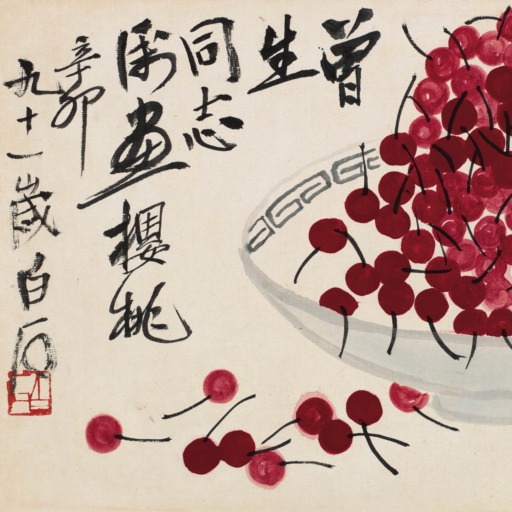 曾
生
同志
属畫櫻桃
辛卯
九十一歲白石